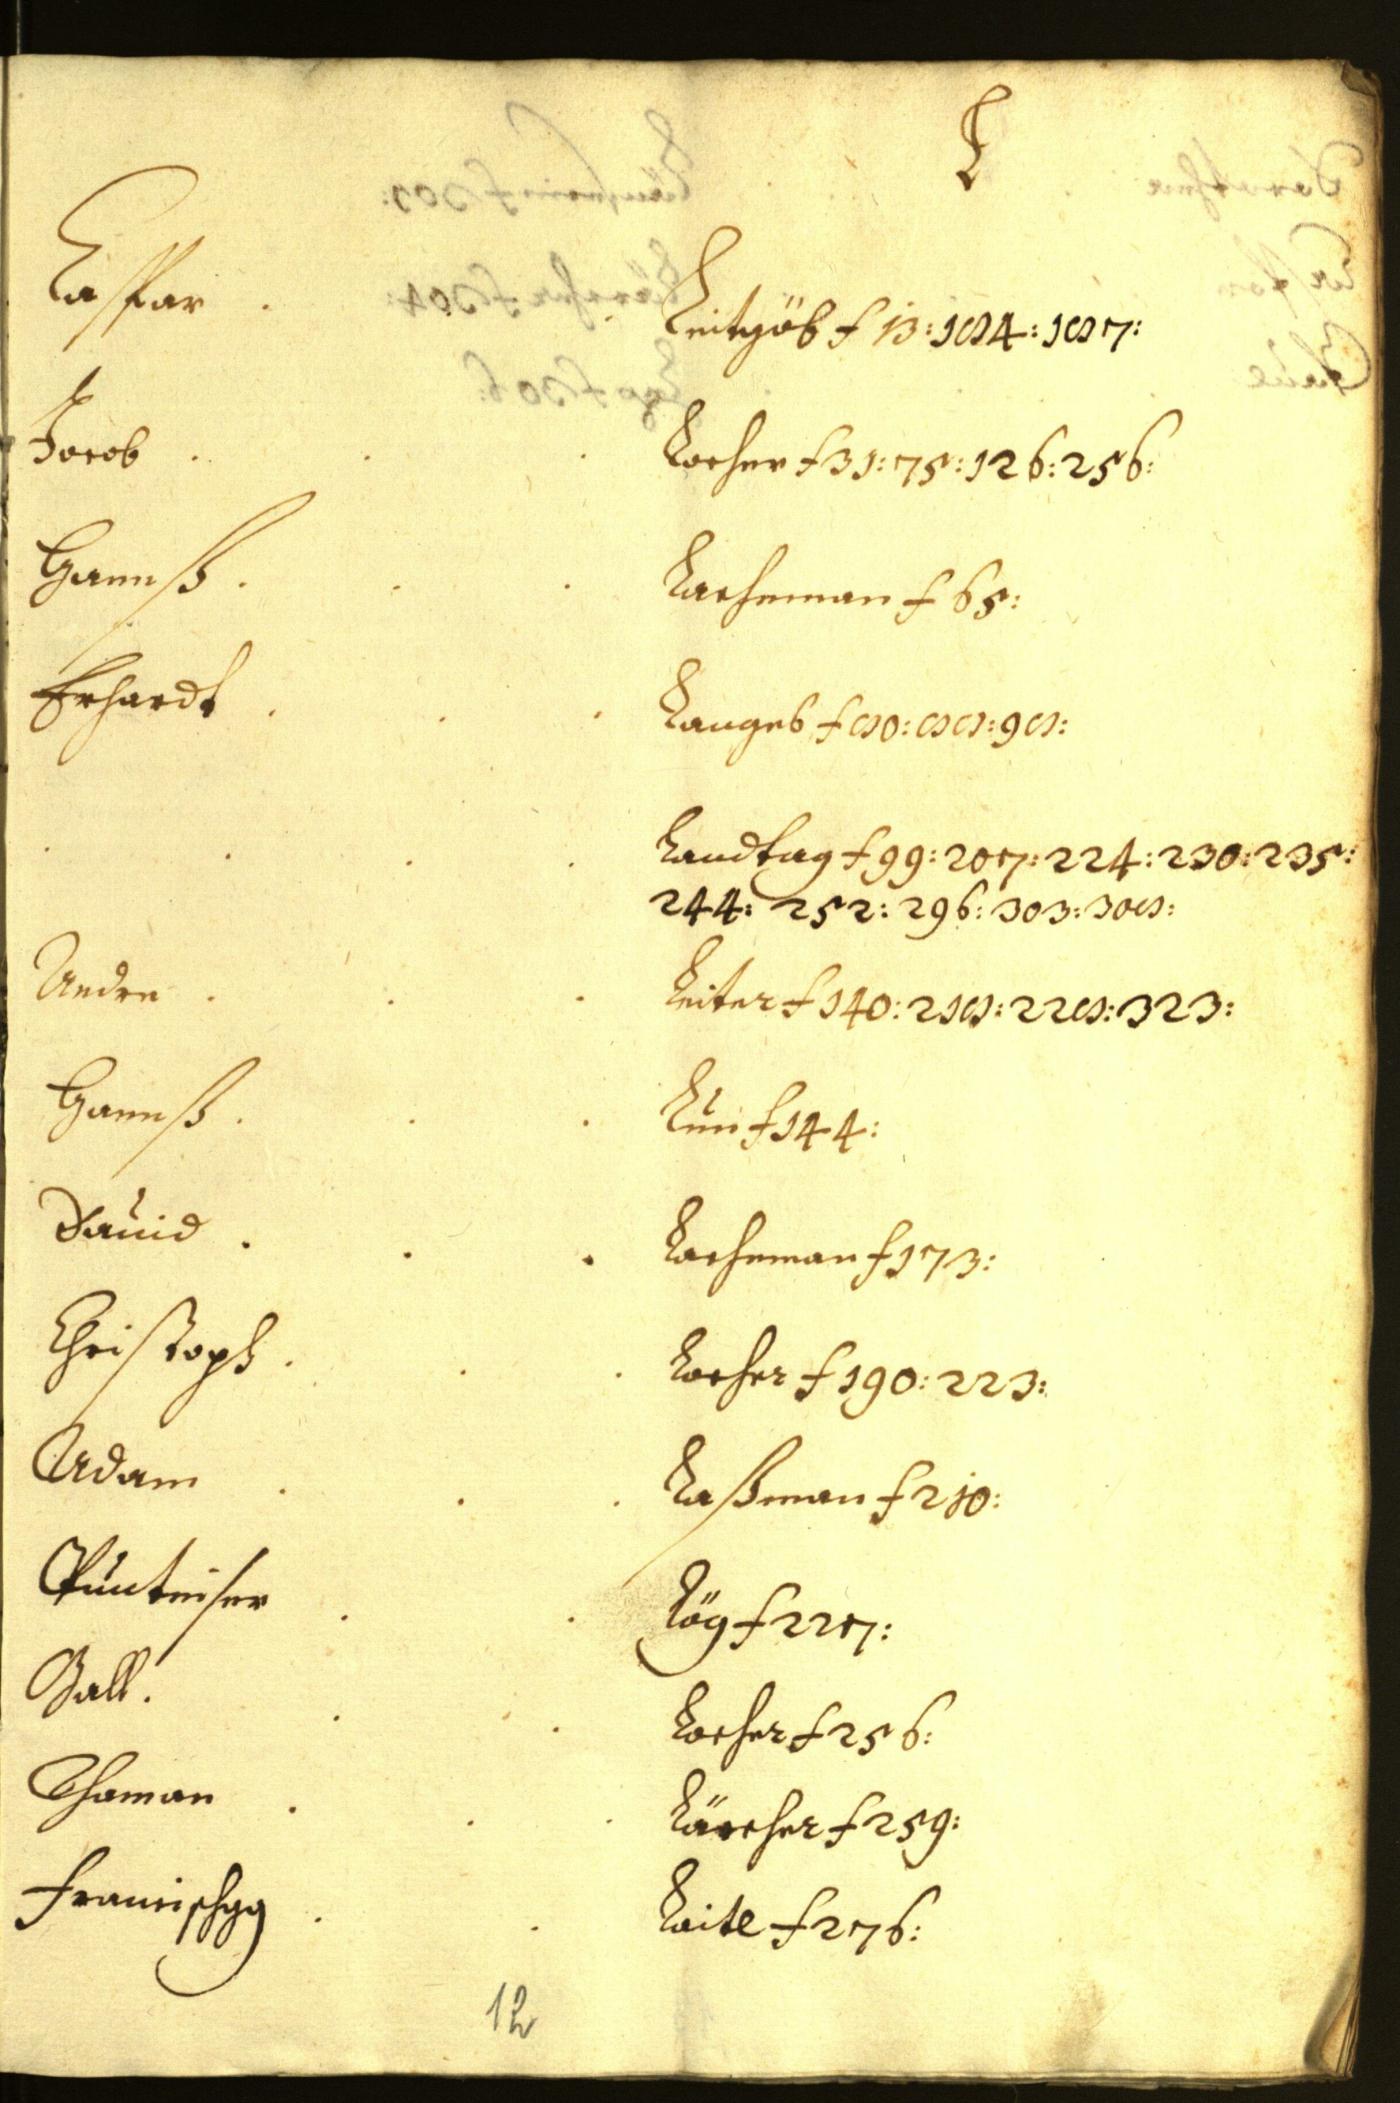 L
Caspar . . Leitgöb f 13: 184: 187:
Jacob . . . Locher f 31: 75: 126: 256:
Hannß . . . Lachman f 65:
Erhardt . . . Langeb f 80: 88: 98:
. . . . Landtag f 99: 207: 224: 230: 235:
244: 252: 296: 303: 308:
Andre . . . Leiter f 140: 218: 228: 323:
Hannß . . . Lun f 144:
Dauid . . . Lacheman f 173:
Christoph . . . Locher f 190: 223:
Adam . . . Laßman f 210:
. . Lög f 227:
Gall . . . Locher f 256:
Thoman . . . Lärcher f 259:
Francischgg . . Laitl f 276:
12